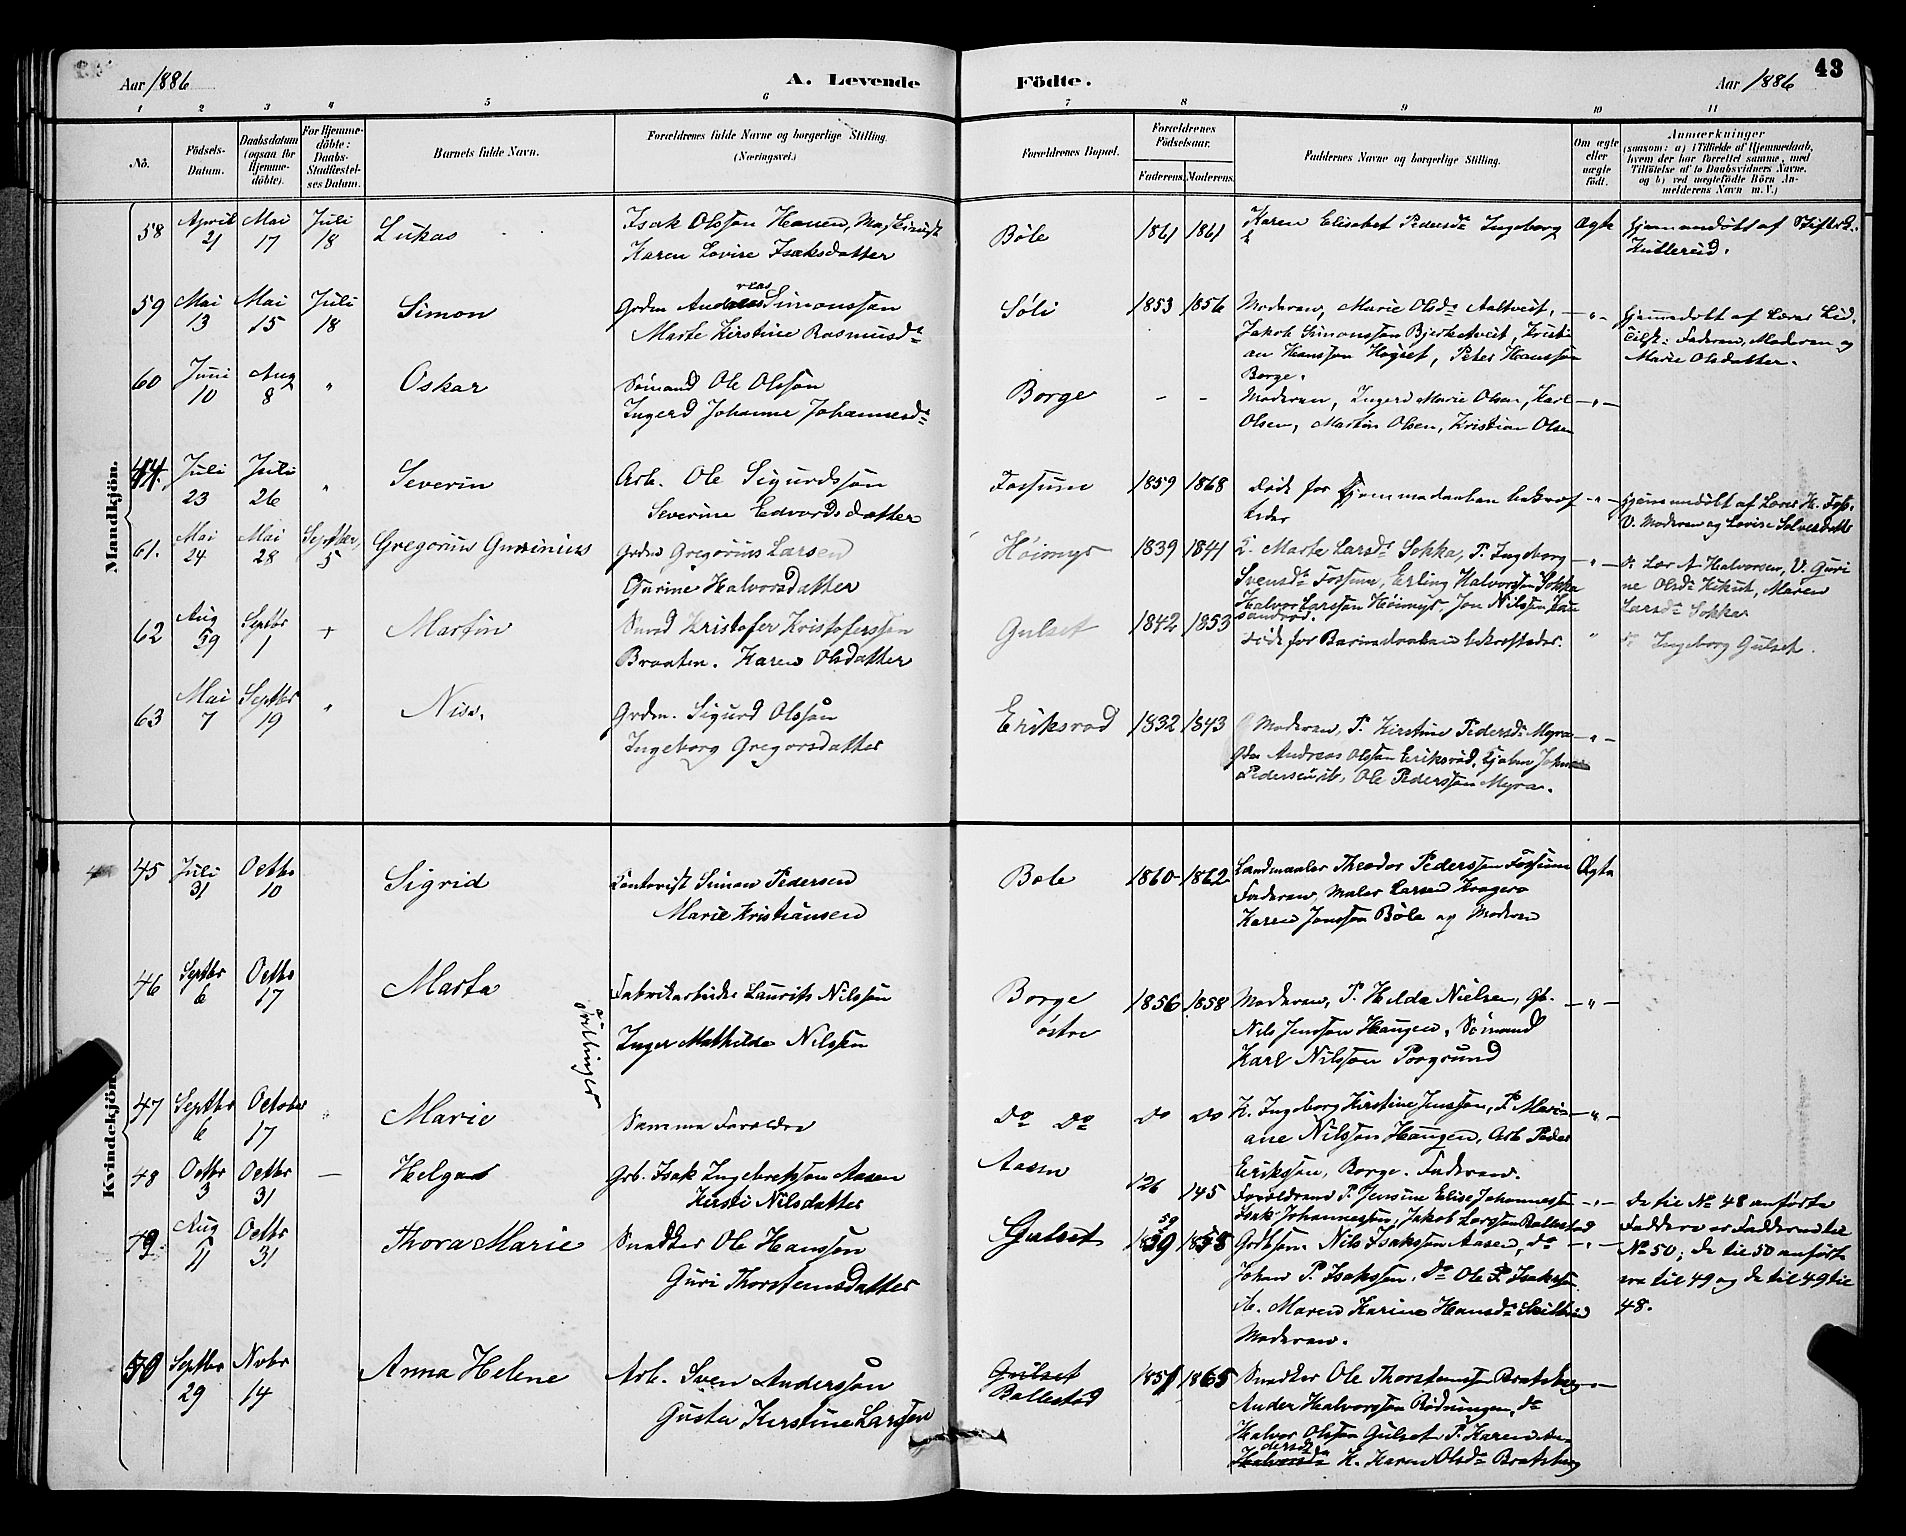 Aar 1886
A. Levende
Födte.
Aar 1886
43
1 2 3 4 5 6 7 8 9 10 11
No.
Födsels-
Datum.
Daabsdatum
(ogsaa for
Hjemme-
döbte).
For Hjemme-
döbte:
Daabs-
Stadfæstel-
ses Datum.
Barnets fulde Navn.
Forældrenes fulde Navne og borgerlige Stilling.
(Næringsvei.)
Forældrenes Bopæl.
Forældrenes
Födselsaar.
Faderens. Moderens.
Faddernes Navne og borgerlige Stilling.
Om ægte
eller
uægte
födt.
Anmærkninger
(saasom: a) i Tilfælde af Hjemmedaab,
hvem der har forrettet samme, med
Tilföielse af to Daabsvidners Navne,
og b) ved uægtefödte Börn An-
melderens Navn m. V.)
Mandkjön.
58 April 21 Mai 17 Juli 18 Lukas
Isak Olsson Hauen, Maskinist
Karen Lovise Isaksdatter
Böle 1861 1861
Karen Elisabet Pedersd. Ingeborg
Ægte
Hjemmedöbt af
59 Mai 13 Mai 15 Juli 18 Simon
Grdm Andreas Simonsson
Marte Kirstine Rasmusd.
Söli 1853 1856
Moderen, Marie Olsd. Aaltveit,
Jakob Simonsson Bjerketveit, Kristi-
an Hansson Högset, Peter Hansson
Borge.
Hjemmedöbt af Lærer Lid.
Tilst: Faderen, Moderen og
Marie Olsdatter.
60 Juni 10 Aug 8 " Oskar
Sömand Ole Olsson
Ingerd Johanne Johannesd.
Borge - -
Moderen, Ingerd Marie Olsen, Karl
Olsen, Martin Olsen, Kristian Olsen
44. Juli 23 Juli 26 " Severin
Arb. Ole Sigurdsson
Severine Edvardsdatter
Fossum 1859 1868
Död för Hjemmedaaben bekræf-
tedes
Hjemmedöbt af Lærer H. Foss.
V. Moderen og Lovise Solvesdatter
61. Mai 24 Mai 28 Septbr 5 Gregorius Gurinius
Grdm Gregorius Larsen
Gurine Halvorsdatter
Höimyr 1839 1841
K. Marte Larsd. Sokka, P. Ingeborg
Svensd. Fossum, Erling Halvorsson Sokka
Halvor Larsson Höimyr, Jon Nilsson
do Lær A Halvorsen, V. Guri-
ne Olsd. Kikut, Maren
Larsd. Sokka
62 Aug 29 Septbr 1 + Martin
Smed Kristofer Kristofersson
Braaten. Karen Olsdatter
Gulset 1842 1853
Död for Barnedaaben bekræftedes.
do Ingeborg Gulset.
63 Mai 7 Septbr 19 " Nils.
Grdm. Sigurd Olsson
Ingeborg Gregorsdatter
Eriksrod 1832 1843
Moderen, P. Kirstine Pedersd. Myra
Gdm Andreas Olsson Eriksröd,
Ole Pedersson Myra.
Kvindekjön.
45 Juli 31 Octbr 10 Sigrid
Kontorist Simon Pedersen
Marie Kristiansen
Bole 1860 1862
Landmaaler Theodor Pedersson Fossum
Faderen, Maler Larsen Kragerö
Karen Jonsson Böle og Moderen
Ægte
46 Septbr 6 Octbr 17 Marta
Tvillinger
Fabrikarbeider Laurits Nilsson
Inger Mathilde Nilssen
Borge
östre
1856 1858
Moderen, P. Hilda Nielsen, Gb.
Nils Jensson Haugen, Sömand
Karl Nilsson Porsgrund
47 Septbr 6 October 17 Marie
Samme Forældre
Do Do Do Do
K. Ingeborg Kirstine Jensson, P. Mari-
ane Nilsson Haugen, Arb. Peder
Eriksson, Borge. Faderen.
48 Octbr 3 Octbr 31 — Helga
Grb. Isak Ingebretsson Aasen
Kirsti Nilsdatter
Aasen
126 145
Forældrene P. Jensine Elise Johannessen
Isak Johannessen, Jakob Larsson Ballestad
Da til No 48 anförte
Faddere er Fadderne til
No 50; de til 50 anfört
era til 49 og de til 49 til
48.
49. Aug 11 Octbr 31 Thora Marie
Snedker Ole Hansson
Guri Thorstensdatter
Gulset 1859 1855
Grdssön. Nils Isaksson Aasen, do
Johan P. Isaksson, do Ole P. Isaksson
K. Maren Karine Hansd.
Moderen.
50 Septbr 29 Nvbr 14 Anna Helene
Arb. Sven Andersson
Gusta Kirstine Larssen
Gulset
Ballestad
1851 1865
Snedker Ole Thorstensson Bratsberg
Ander Halvorsson Rödningen, do
Halvor Olsson Gulset P. Karen An-
dersd.
Halvorsd. K. Karen Olsd. Bratsberg